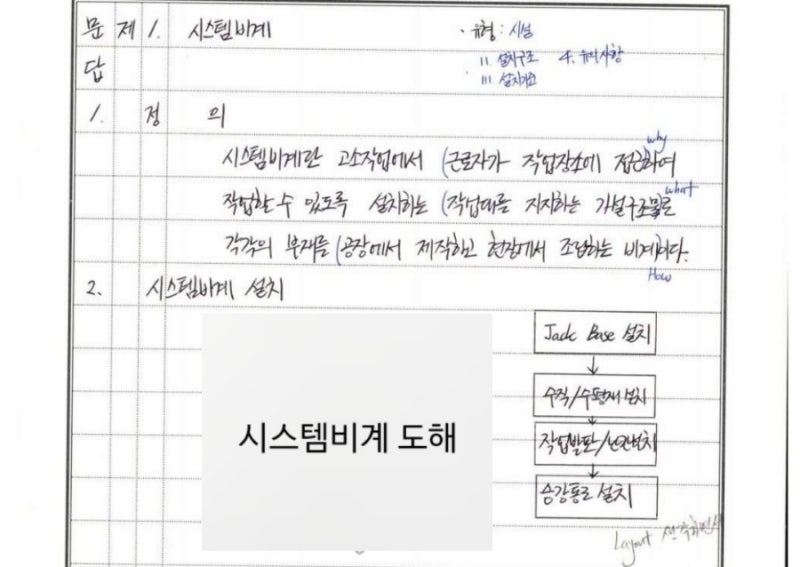 문 제 1. 시스템비계
· 유형 : 시설
11. 설치구조 4. 유의사항
111. 설치기준
답
1. 정 의
why
시스템비계란 고소작업에서 (근로자가 작업장소에 접근하여
what
작업할 수 있도록 설치하는 (작업대를 지지하는 가설구조물로
각각의 부재를 (공장에서 제작하고 현장에서 조립하는 비계이다.
How
2. 시스템비계 설치
Jack Base 설치
수직/수평재 설치
시스템비계 도해
작업발판/난간설치
승강통로 설치
Layout 생각하면서